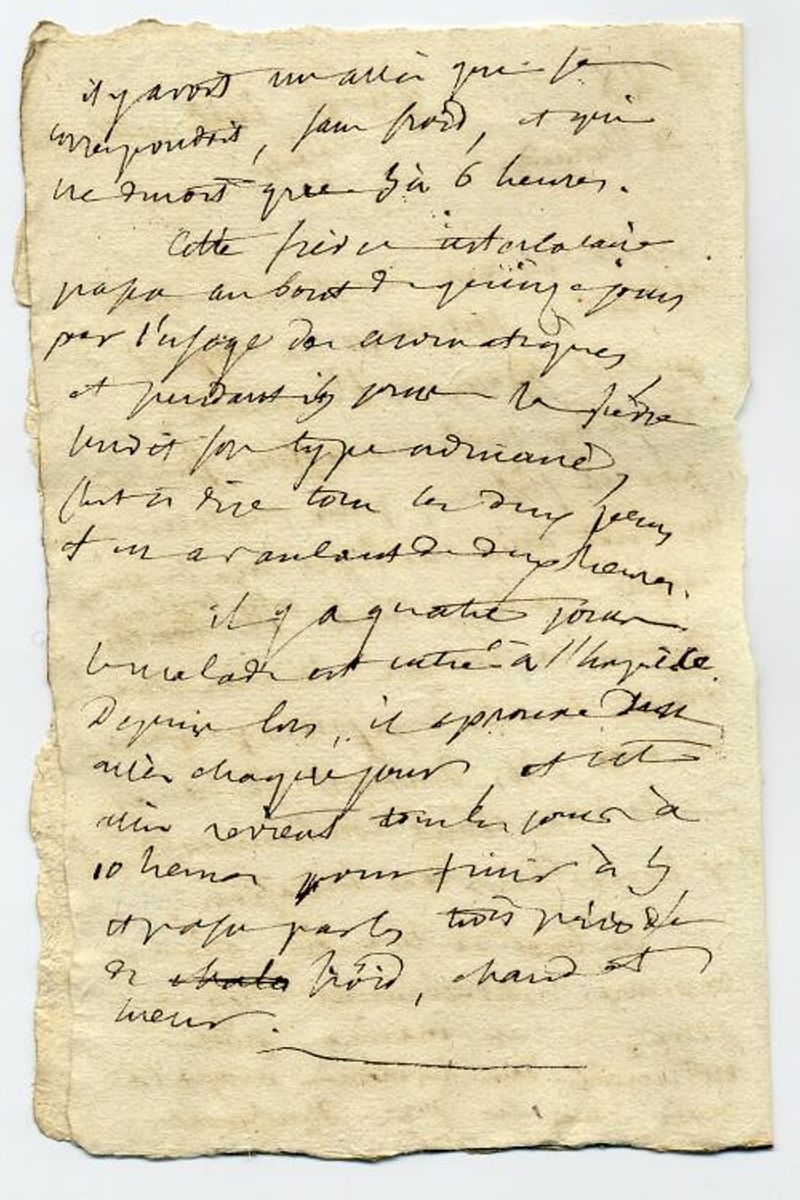 il y avoit un accès qui se
correspondoit, sans froid, et qui
ne duroit que 5 à 6 heures.
Cette fièvre intercalaire
passa au bout de quinze jours
par l'usage des
et pendant 15 jours la fièvre
son type ordinaire,
c'est à dire tous les deux jours
et en avançant de deux heures.
il y a quatre jours
le malade est entré à l'hospice.
Depuis lors, il éprouve deux
accès chaque jour et cet
accès revient tous les jours à
10 heures pour finir à 5,
et passe par les trois périodes
de froid, chaud et
sueur.